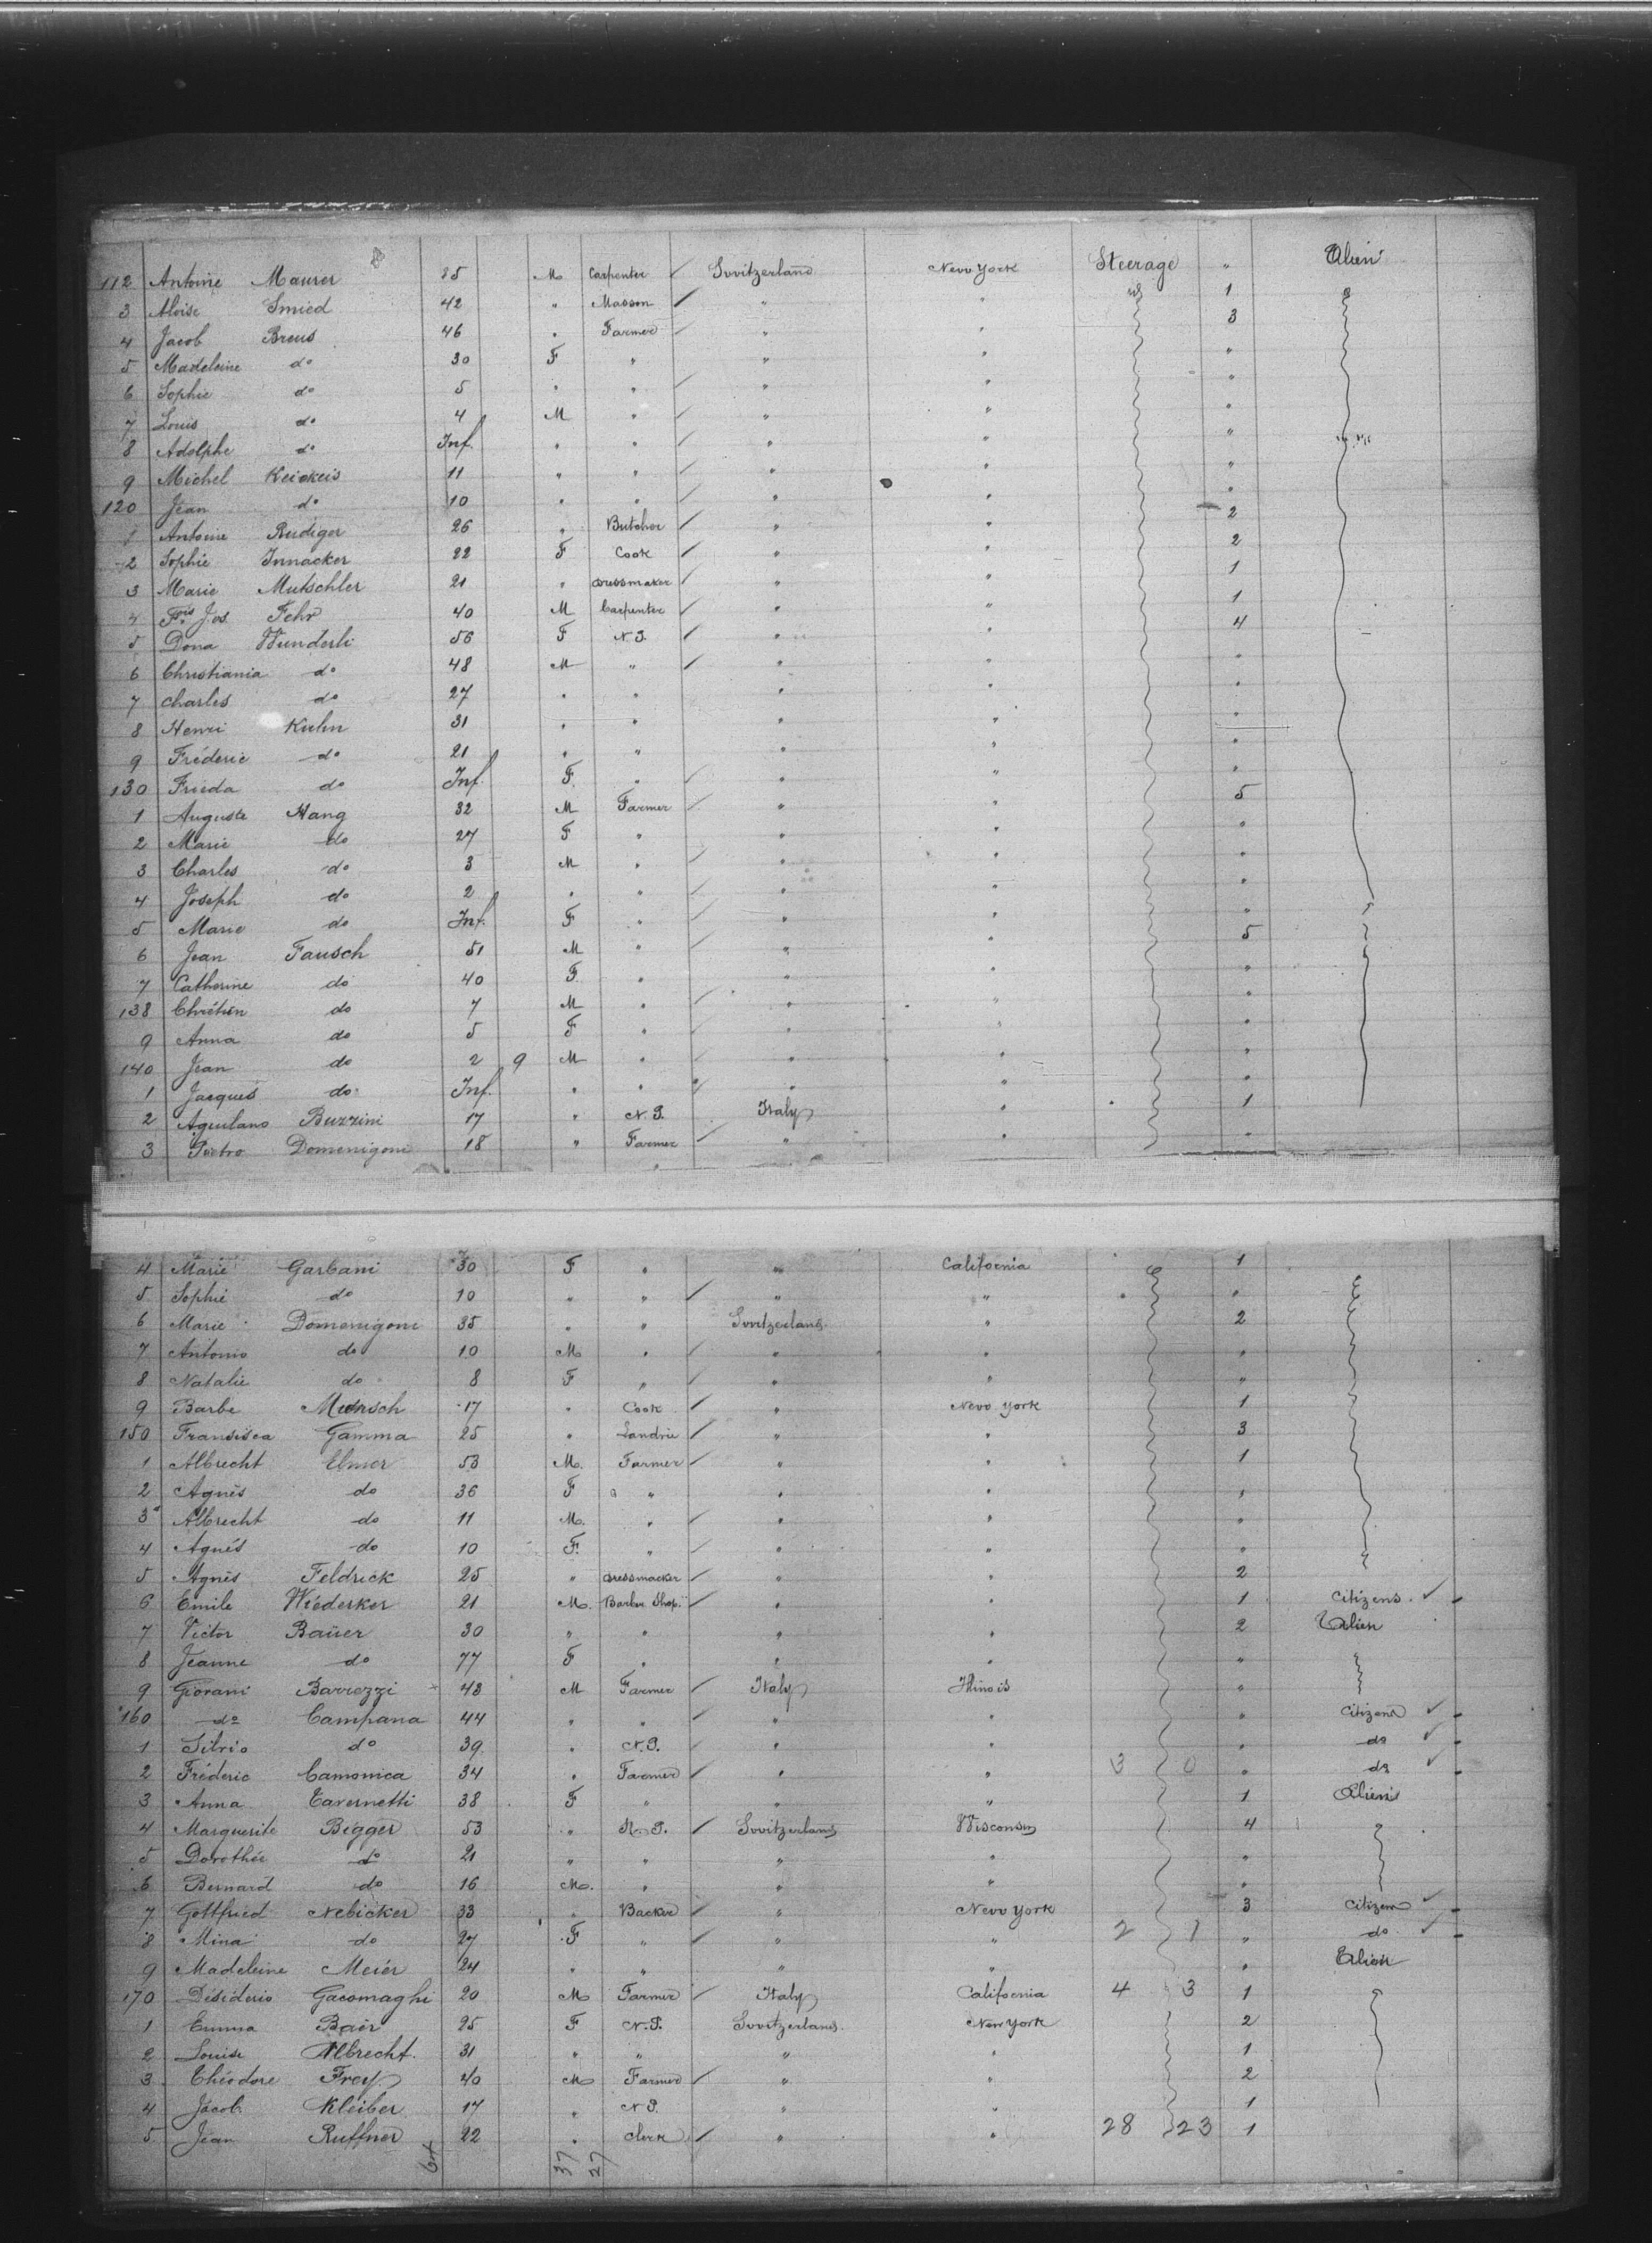 112 Antoine Maurer 25 M Carpenter Switzerland New York Steerage " Alien
3 Aloise Smied 42 " Masson " " 1
4 Jacob Breus 46 " Farmer " " 3
5 Madeleine do 30 F " " " "
6 Sophie do 5 " " " " "
7 Louis do 4 M " " " "
8 Adolphe do Inf. " " " " "
9 Michel Keickeis 11 " " " " "
120 Jean do 10 " " " " "
1 Antoine Rudiger 26 " Butcher " " 2
2 Sophie Innacker 22 F Cook " " 2
3 Marie Mutschler 21 " dressmaker " " 1
4 Fois Jos. Fehr 40 M Carpenter " " 1
5 Dona Wunderli 56 F N.P. " " 4
6 Christiania do 48 M " " " "
7 Charles do 27 " " " " "
8 Henri Kuhn 31 " " " " "
9 Fréderic do 21 " " " " "
130 Frieda do Inf. F. " " " "
1 Auguste Hang 32 M Farmer " " 5
2 Marie do 27 F " " " "
3 Charles do 3 M " " " "
4 Joseph do 2 " " " " "
5 Marie do Inf. F " " " "
6 Jean Fausch 51 M " " " 5
7 Catherine do 40 F. " " " "
138 Chrétien do 7 M " " " "
9 Anna do 5 F " " " "
140 Jean do 2 9 M " " " "
1 Jacques do Inf. " " " " "
2 Aquilano Buzzini 17 " N.P. Italy " 1
3 Pietro Domenigoni 18 " Farmer " " "
4 Marie Garbani 30 F " " California 1
5 Sophie do 10 " " " " "
6 Marie Domenigoni 35 " " Switzerland " 2
7 Antonio do 10 M " " " "
8 Natalie do 8 F " " " "
9 Barbe Munsch 17 " Cook " New York 1
150 Fransisca Gamma 25 " Landrie " " 3
1 Albrecht Elmer 53 M. Farmer " " 1
2 Agnès do 36 F " " " "
3 Albrecht do 11 M. " " " "
4 Agnés do 10 F. " " " "
5 Agnès Feldrick 25 " dressmacker " " 2
6 Emile Wiéderker 21 M. Barber Shop. " " 1 Citizens.
7 Victor Baüer 30 " " " " 2 Alien
8 Jeanne do 77 F " " " "
9 Giovani Barrozzi 43 M Farmer Italy Illinois "
160 do Campana 44 " " " " " Citizens
1 Silvio do 39 " N.P. " " " do
2 Fréderic Camonica 34 " Farmer " " 3 0 " do
3 Anna Tavernetti 38 F " " " 1 Aliens
4 Marguerite Bigger 53 " N.P. Switzerland Wisconsin 4
5 Dorothée do 21 " " " " "
6 Bernard do 16 M. " " " "
7 Gottfried Nebicker 33 " Backer " New York 3 Citizens
8 Mina do 27 F " " " 2 1 " do
9 Madeleine Meiér 24 " " " " " Alien
170 Désiderio Gacomaghi 20 M Farmer Italy California 4 3 1
1 Emma Bair 25 F N.P. Switzerland New York 2
2 Louise Albrecht. 31 " " " " 1
3 Théodore Frey 40 M Farmer " " 2
4 Jacob Kleiber 17 " N.P. " " 1
5 Jean Ruffner 22 " Clerk " " 28 23 1
64 37 27